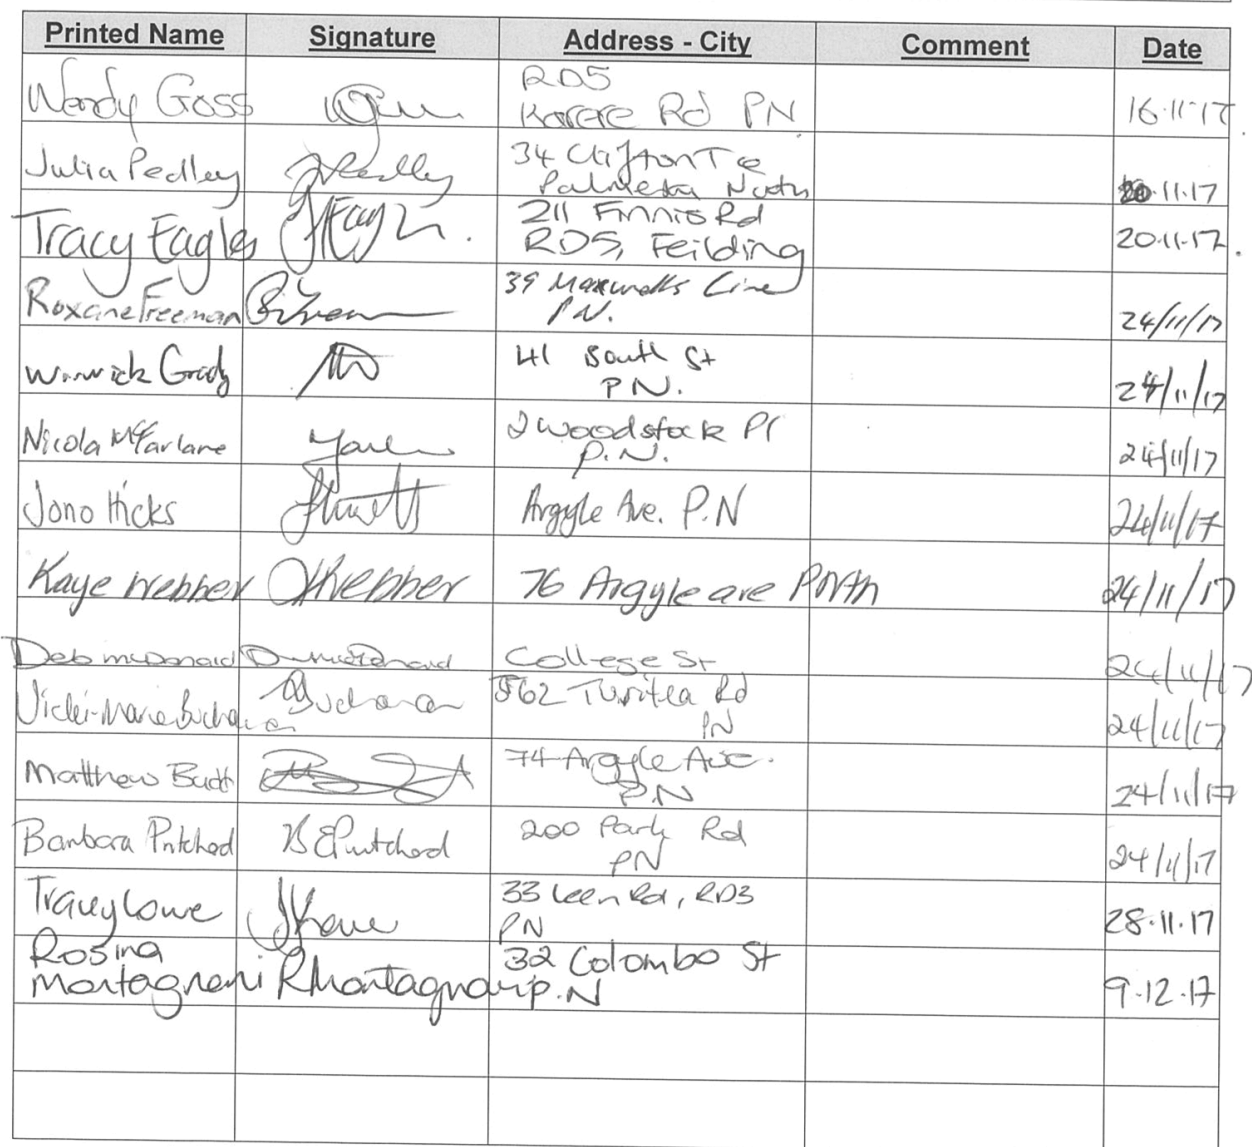 Printed Name Signature Address - City Comment Date
RD5
Wendy Goss Karere Rd PN 16.11.17.
Julia Pedley JPedley 34 Clifton Tce
Palmerston North 20.11.17
Tracy Eagles 211 Finnis Rd
RD5, Feilding 20.11.17.
Roxane Freeman 39 Maxwells Line
P.N. 24/11/17
Warwick Grady 41 South St
P.N. 24/11/17
Nicola McFarlane 2 Woodstock Pl
P.N. 24/11/17
Jono Hicks Argyle Ave. P.N 24/11/17
Kaye Webber Webber 76 Argyle ave PNth 24/11/17
Deb McDonald College St 24/11/17
Vicki-Marie Buchanan Buchanan 562 Turitea Rd
PN 24/11/17
Matthew Budd 74 Argyle Ave.
P.N 24/11/17
Barbara Pritchard B E Pritchard 200 Park Rd
PN 24/11/17
Tracey Lowe 33 Rd, RD3
PN 28.11.17
Rosina 32 Colombo St
Montagnani RMontagnani P.N 9.12.17